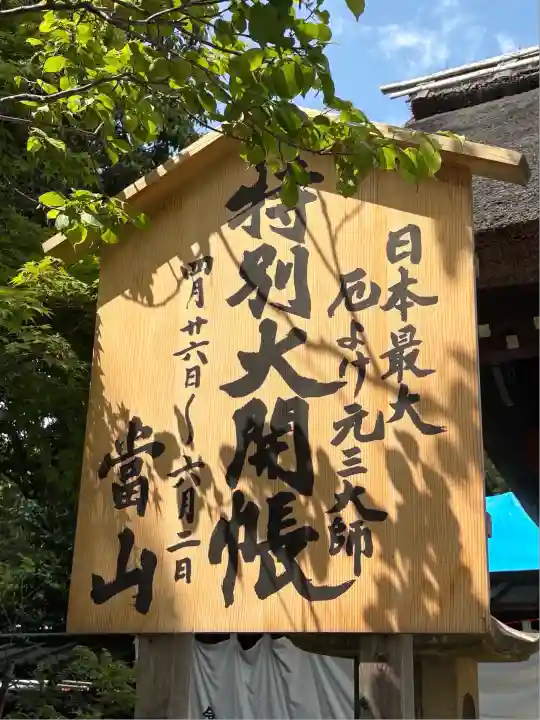 日本最大
厄よけ元三大師
特別大開帳
四月廿六日〜六月二日
當山